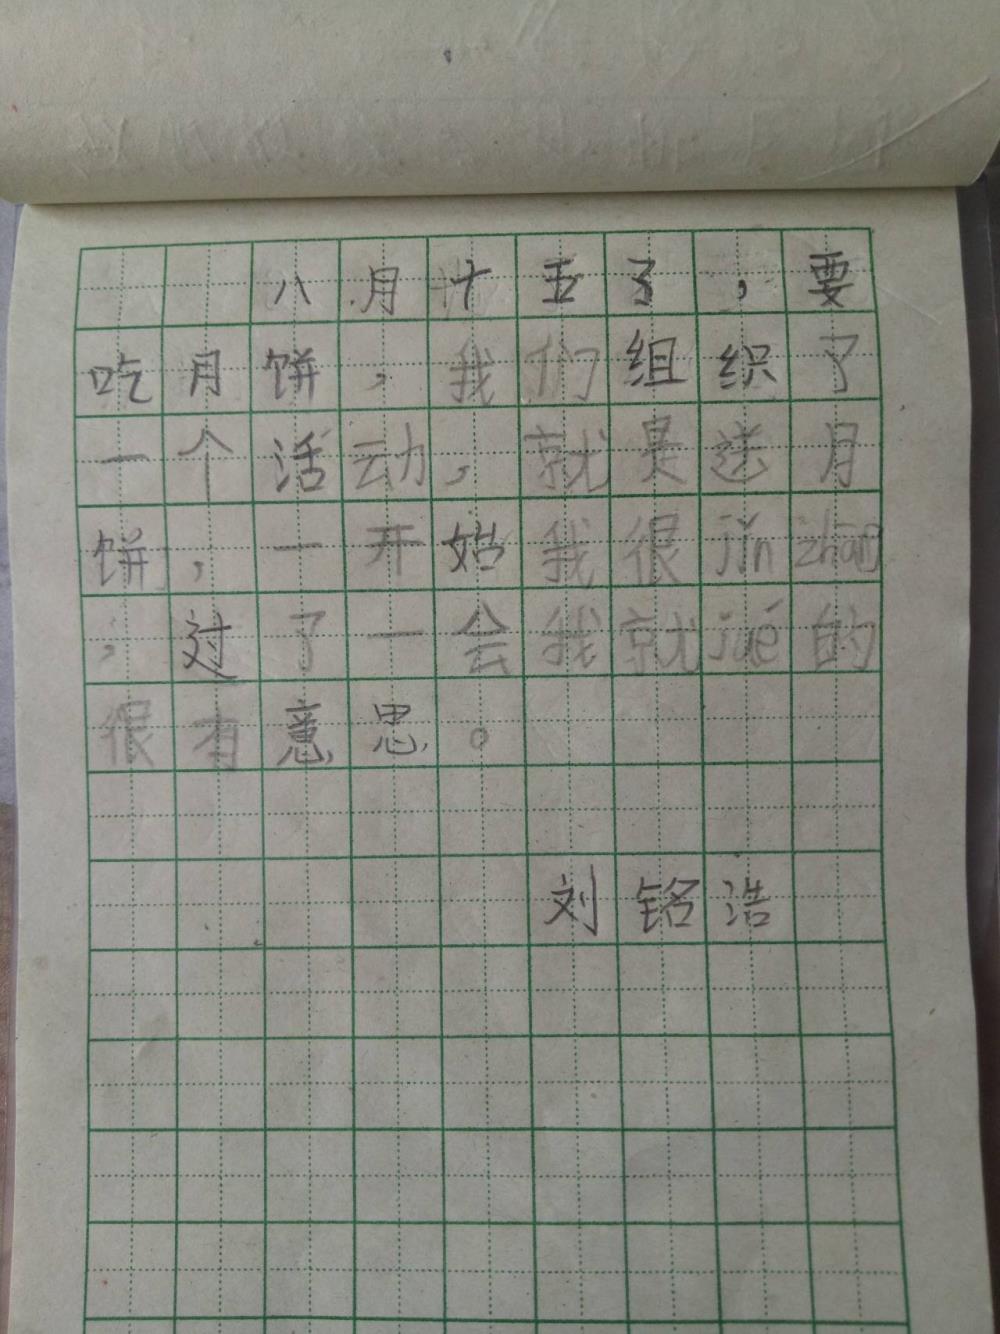 八月十五了，要
吃月饼，我们组织了
一个活动，就是送月
饼，一开始我很jǐn zhāng
，过了一会我就jué的
很有意思。
刘铭浩